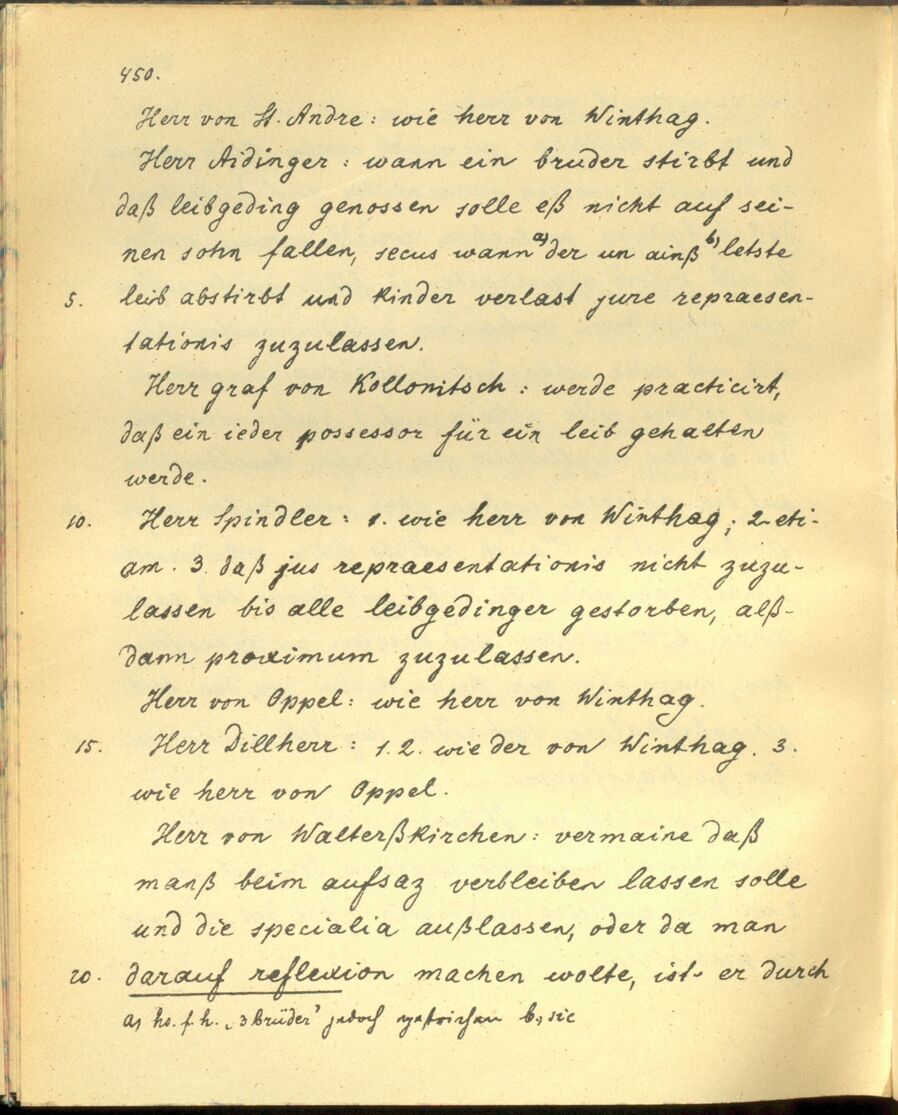 450.
Herr von St. Andre: wie herr von Winthag.
Herr Aidinger: wann ein bruder stirbt und
daß leibgeding genossen solle eß nicht auf sei-
nen sohn fallen, secus wann a) der un ainß b) letste
5. leib abstirbt und kinder verlast jure repraesen-
tationis zuzulassen.
Herr graf von Kollonitsch: werde practicirt,
daß ein ieder possessor für ein leib gehalten
werde.
10. Herr Spindler: 1. wie herr von Winthag; 2. eti-
am. 3. daß jus repraesentationis nicht zuzu-
lassen bis alle leibgedinger gestorben, alß-
dann proximum zuzulassen.
Herr von Oppel: wie herr von Winthag.
15. Herr Dillherr: 1. 2. wie der von Winthag. 3.
wie herr von Oppel.
Herr von Walterßkirchen: vermaine daß
manß beim aufsaz verbleiben lassen solle
und die specialia außlassen, oder da man
20. darauf reflexion machen wolte, ist er durch
a) hs. f. h. „3 brüder" jedoch gestrichen b) sic